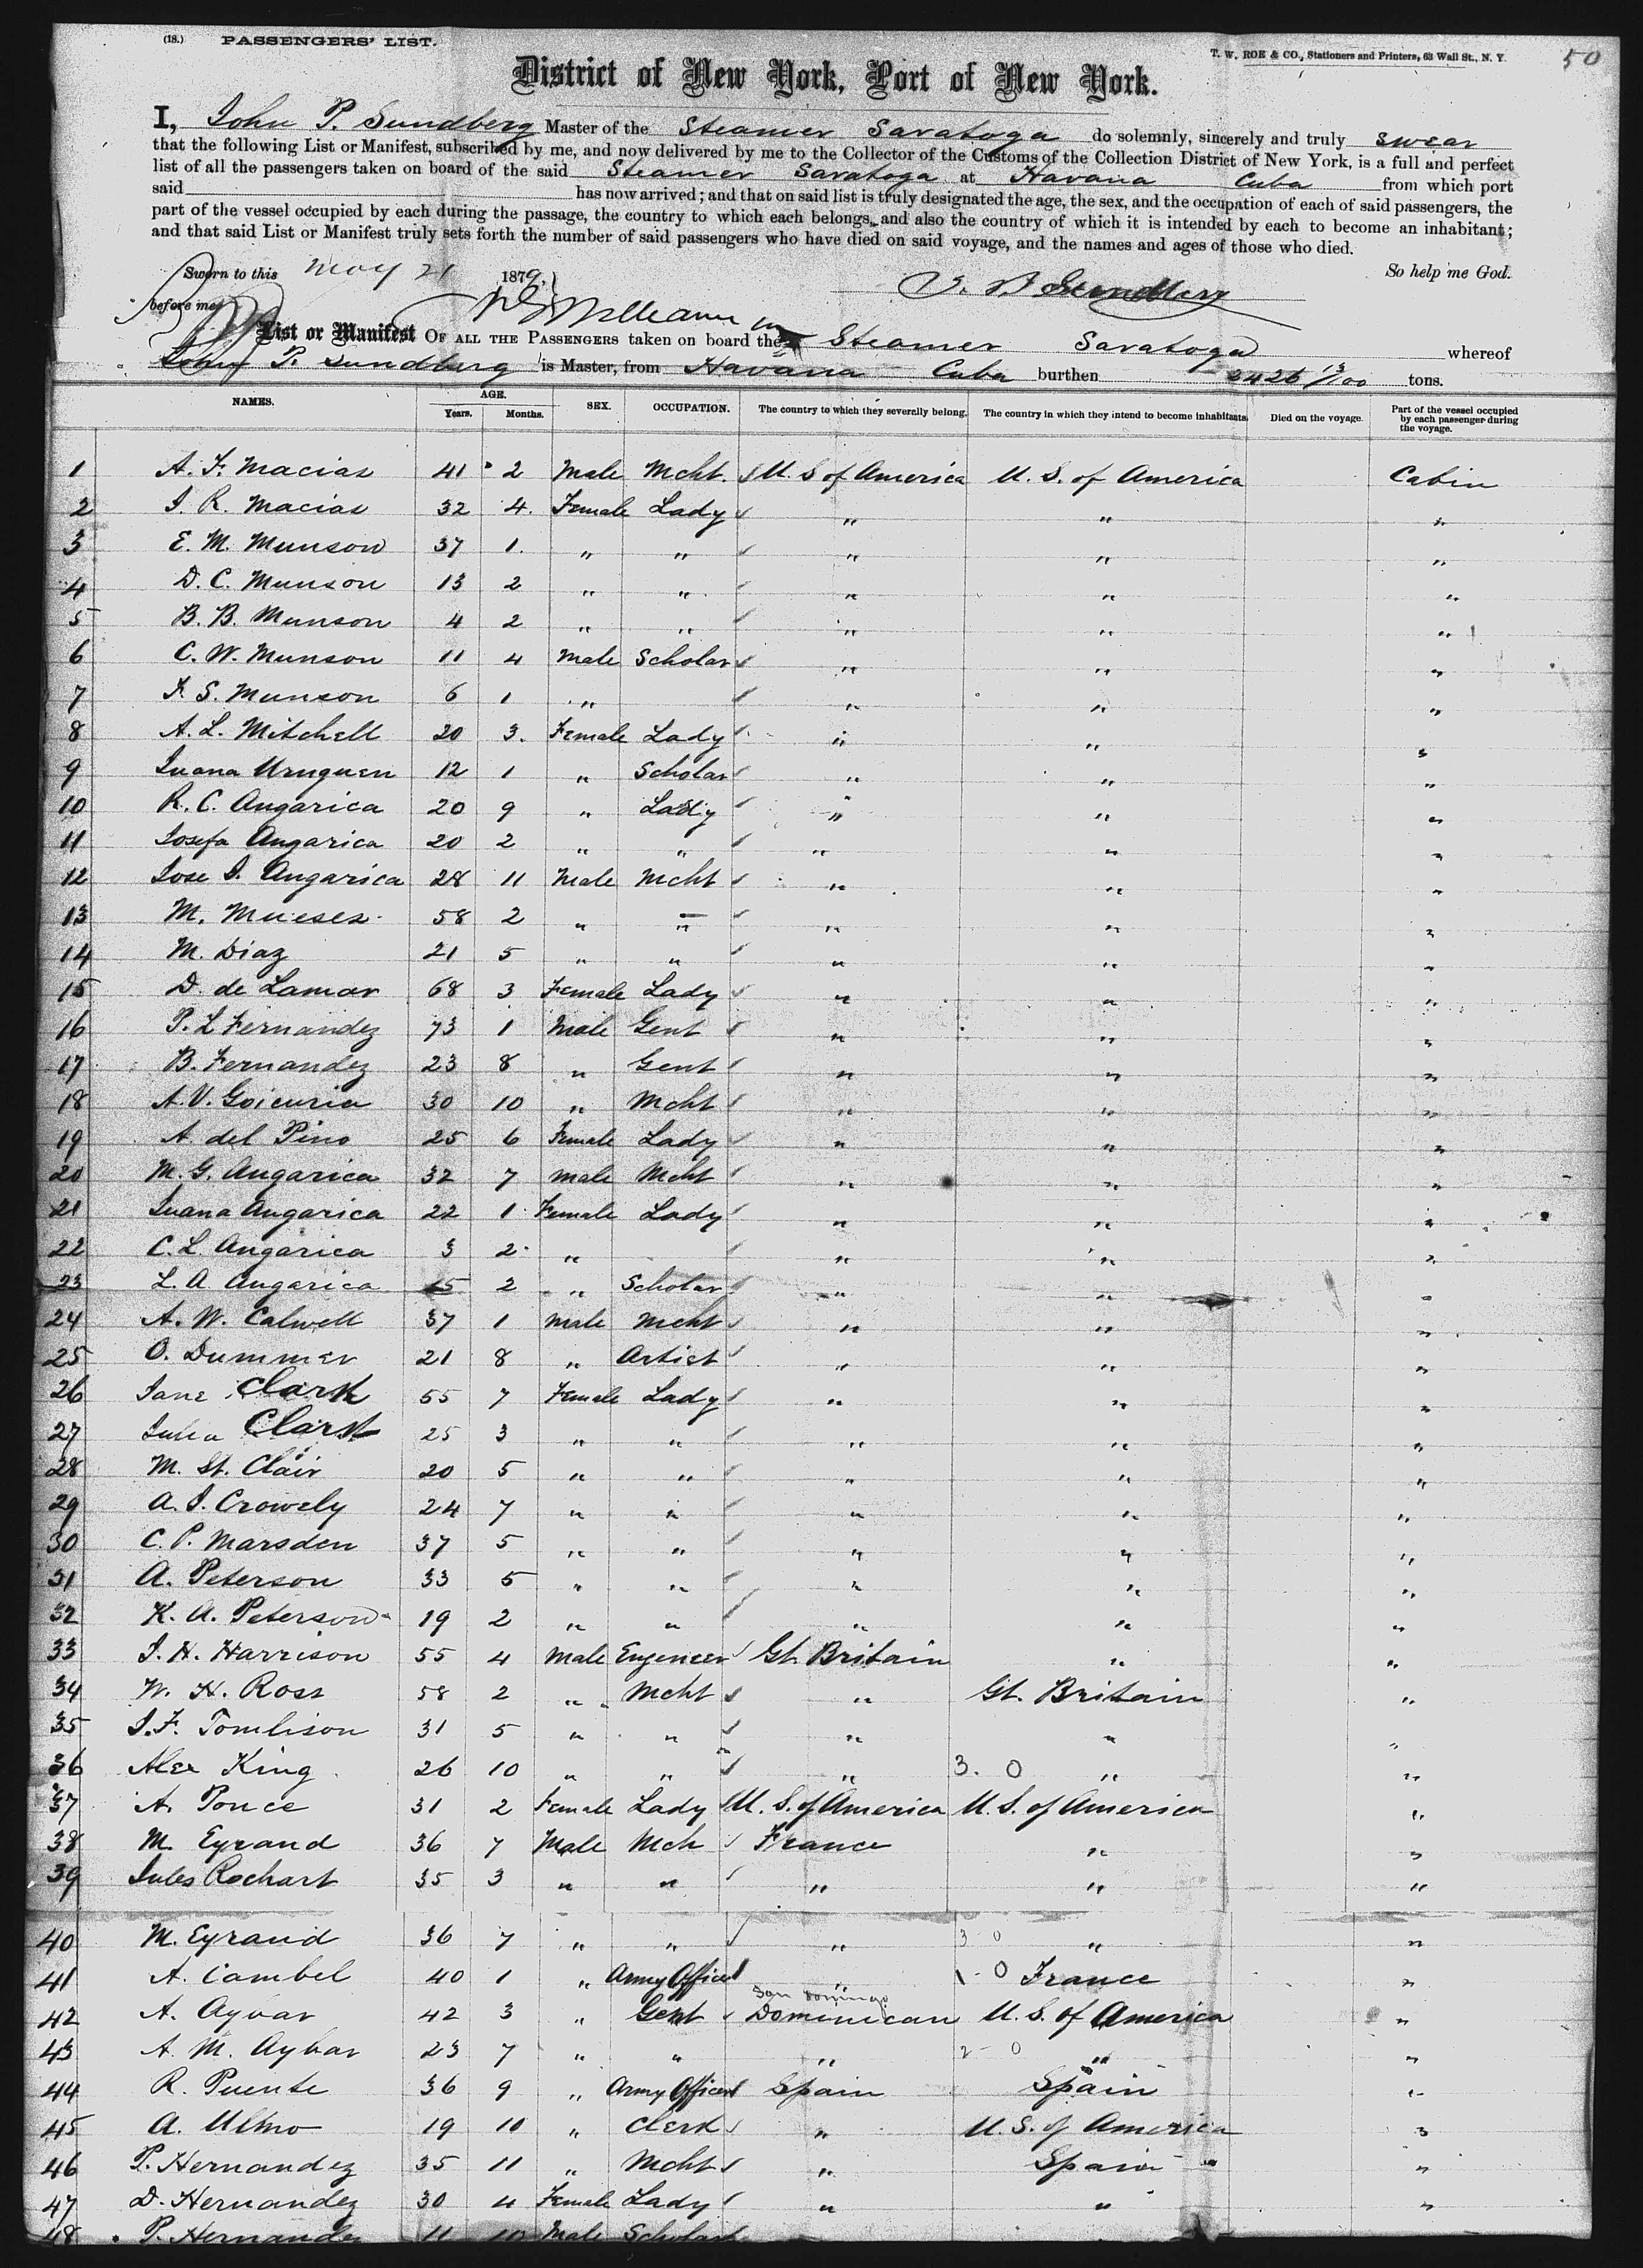 (18.) PASSENGERS' LIST.
T. W. ROE & CO., Stationers and Printers, 63 Wall St., N. Y.
50
District of New York, Port of New York.
I, John P. Sundberg Master of the Steamer Saratoga do solemnly, sincerely and truly swear
that the following List or Manifest, subscribed by me, and now delivered by me to the Collector of the Customs of the Collection District of New York, is a full and perfect
list of all the passengers taken on board of the said Steamer Saratoga at Havana Cuba from which port
said has now arrived; and that on said list is truly designated the age, the sex, and the occupation of each of said passengers, the
part of the vessel occupied by each during the passage, the country to which each belongs, and also the country of which it is intended by each to become an inhabitant;
and that said List or Manifest truly sets forth the number of said passengers who have died on said voyage, and the names and ages of those who died.
So help me God.
Sworn to this May 21 1879,
before me
List or Manifest OF ALL THE PASSENGERS taken on board the Steamer Saratoga whereof
John P. Sundberg is Master, from Havana Cuba burthen 2426 13/100 tons.
NAMES. AGE. Years. Months. SEX. OCCUPATION. The country to which they severally belong. The country in which they intend to become inhabitants. Died on the voyage. Part of the vessel occupied by each passenger during the voyage.
1 A. F. Macias 41 2 Male Mcht. U. S of America U. S. of America Cabin
2 I. R. Macias 32 4. Female Lady " " "
3 E. M. Munson 37 1. " " " " "
4 D. C. Munson 13 2 " " " " "
5 B. B. Munson 4 2 " " " " "
6 C. W. Munson 11 4 Male Scholar " " "
7 F. S. Munson 6 1 " " " "
8 A. L. Mitchell 20 3. Female Lady " " "
9 Juana Uruguen 12 1 " Scholar " " "
10 R. C. Angarica 20 9 " Lady " " "
11 Josefa Angarica 20 2 " " " " "
12 Jose I. Angarica 28 11 Male Mcht " " "
13 M. Mueses 58 2 " " " " "
14 M. Diaz 21 5 " " " " "
15 D. de Lamar 68 3 Female Lady " " "
16 P. L Fernandez 73 1 Male Gent " " "
17 B. Fernandez 23 8 " Gent " " "
18 A. V. Goicuria 30 10 " Mcht " " "
19 A del Pino 25 6 Female Lady " " "
20 M. G. Angarica 32 7 male Mcht " " "
21 Juana Angarica 22 1 Female Lady " " "
22 C. L. Angarica 3 2 " " " "
23 L. A. Angarica 15 2 " Scholar " " "
24 A. W. Calwell 37 1 male Mcht " " "
25 O. Dummer 21 8 " Artist " " "
26 Jane Clark 55 7 Female Lady " " "
27 Julia Clark 25 3 " " " " "
28 M. St. Clair 20 5 " " " " "
29 A. I. Crowely 24 7 " " " " "
30 C. P. Marsden 37 5 " " " " "
31 A. Peterson 33 5 " " " " "
32 K. A. Peterson 19 2 " " " " "
33 J. H. Harrison 55 4 Male Engeneer Gt. Britain " "
34 W. H. Ross 58 2 " Mcht " Gt. Britain "
35 J. F. Tomlison 31 5 " " " " "
36 Alex King 26 10 " " " 3. 0 " "
37 A. Ponce 31 2 Female Lady U. S. of America U. S. of America "
38 M. Eyrand 36 7 Male Mch France " "
39 Jules Rochart 35 3 " " " " "
40 M. Eyraud 36 7 " " " 3 0 " "
41 A. Cambel 40 1 " Army Officer " 1 - 0 France "
San Domingo
42 A. Aybar 42 3 " Gent Dominican U. S. of America "
43 A. M. Aybar 23 7 " " " 2 - 0 " "
44 R. Puente 36 9 " Army Officer Spain Spain "
45 A. Ulmo 19 10 " Clerk " U. S. of America "
46 P. Hernandez 35 11 " Mcht " Spain "
47 D. Hernandez 30 4 Female Lady " " "
48 P. Hernandez 11 10 Male Scholar